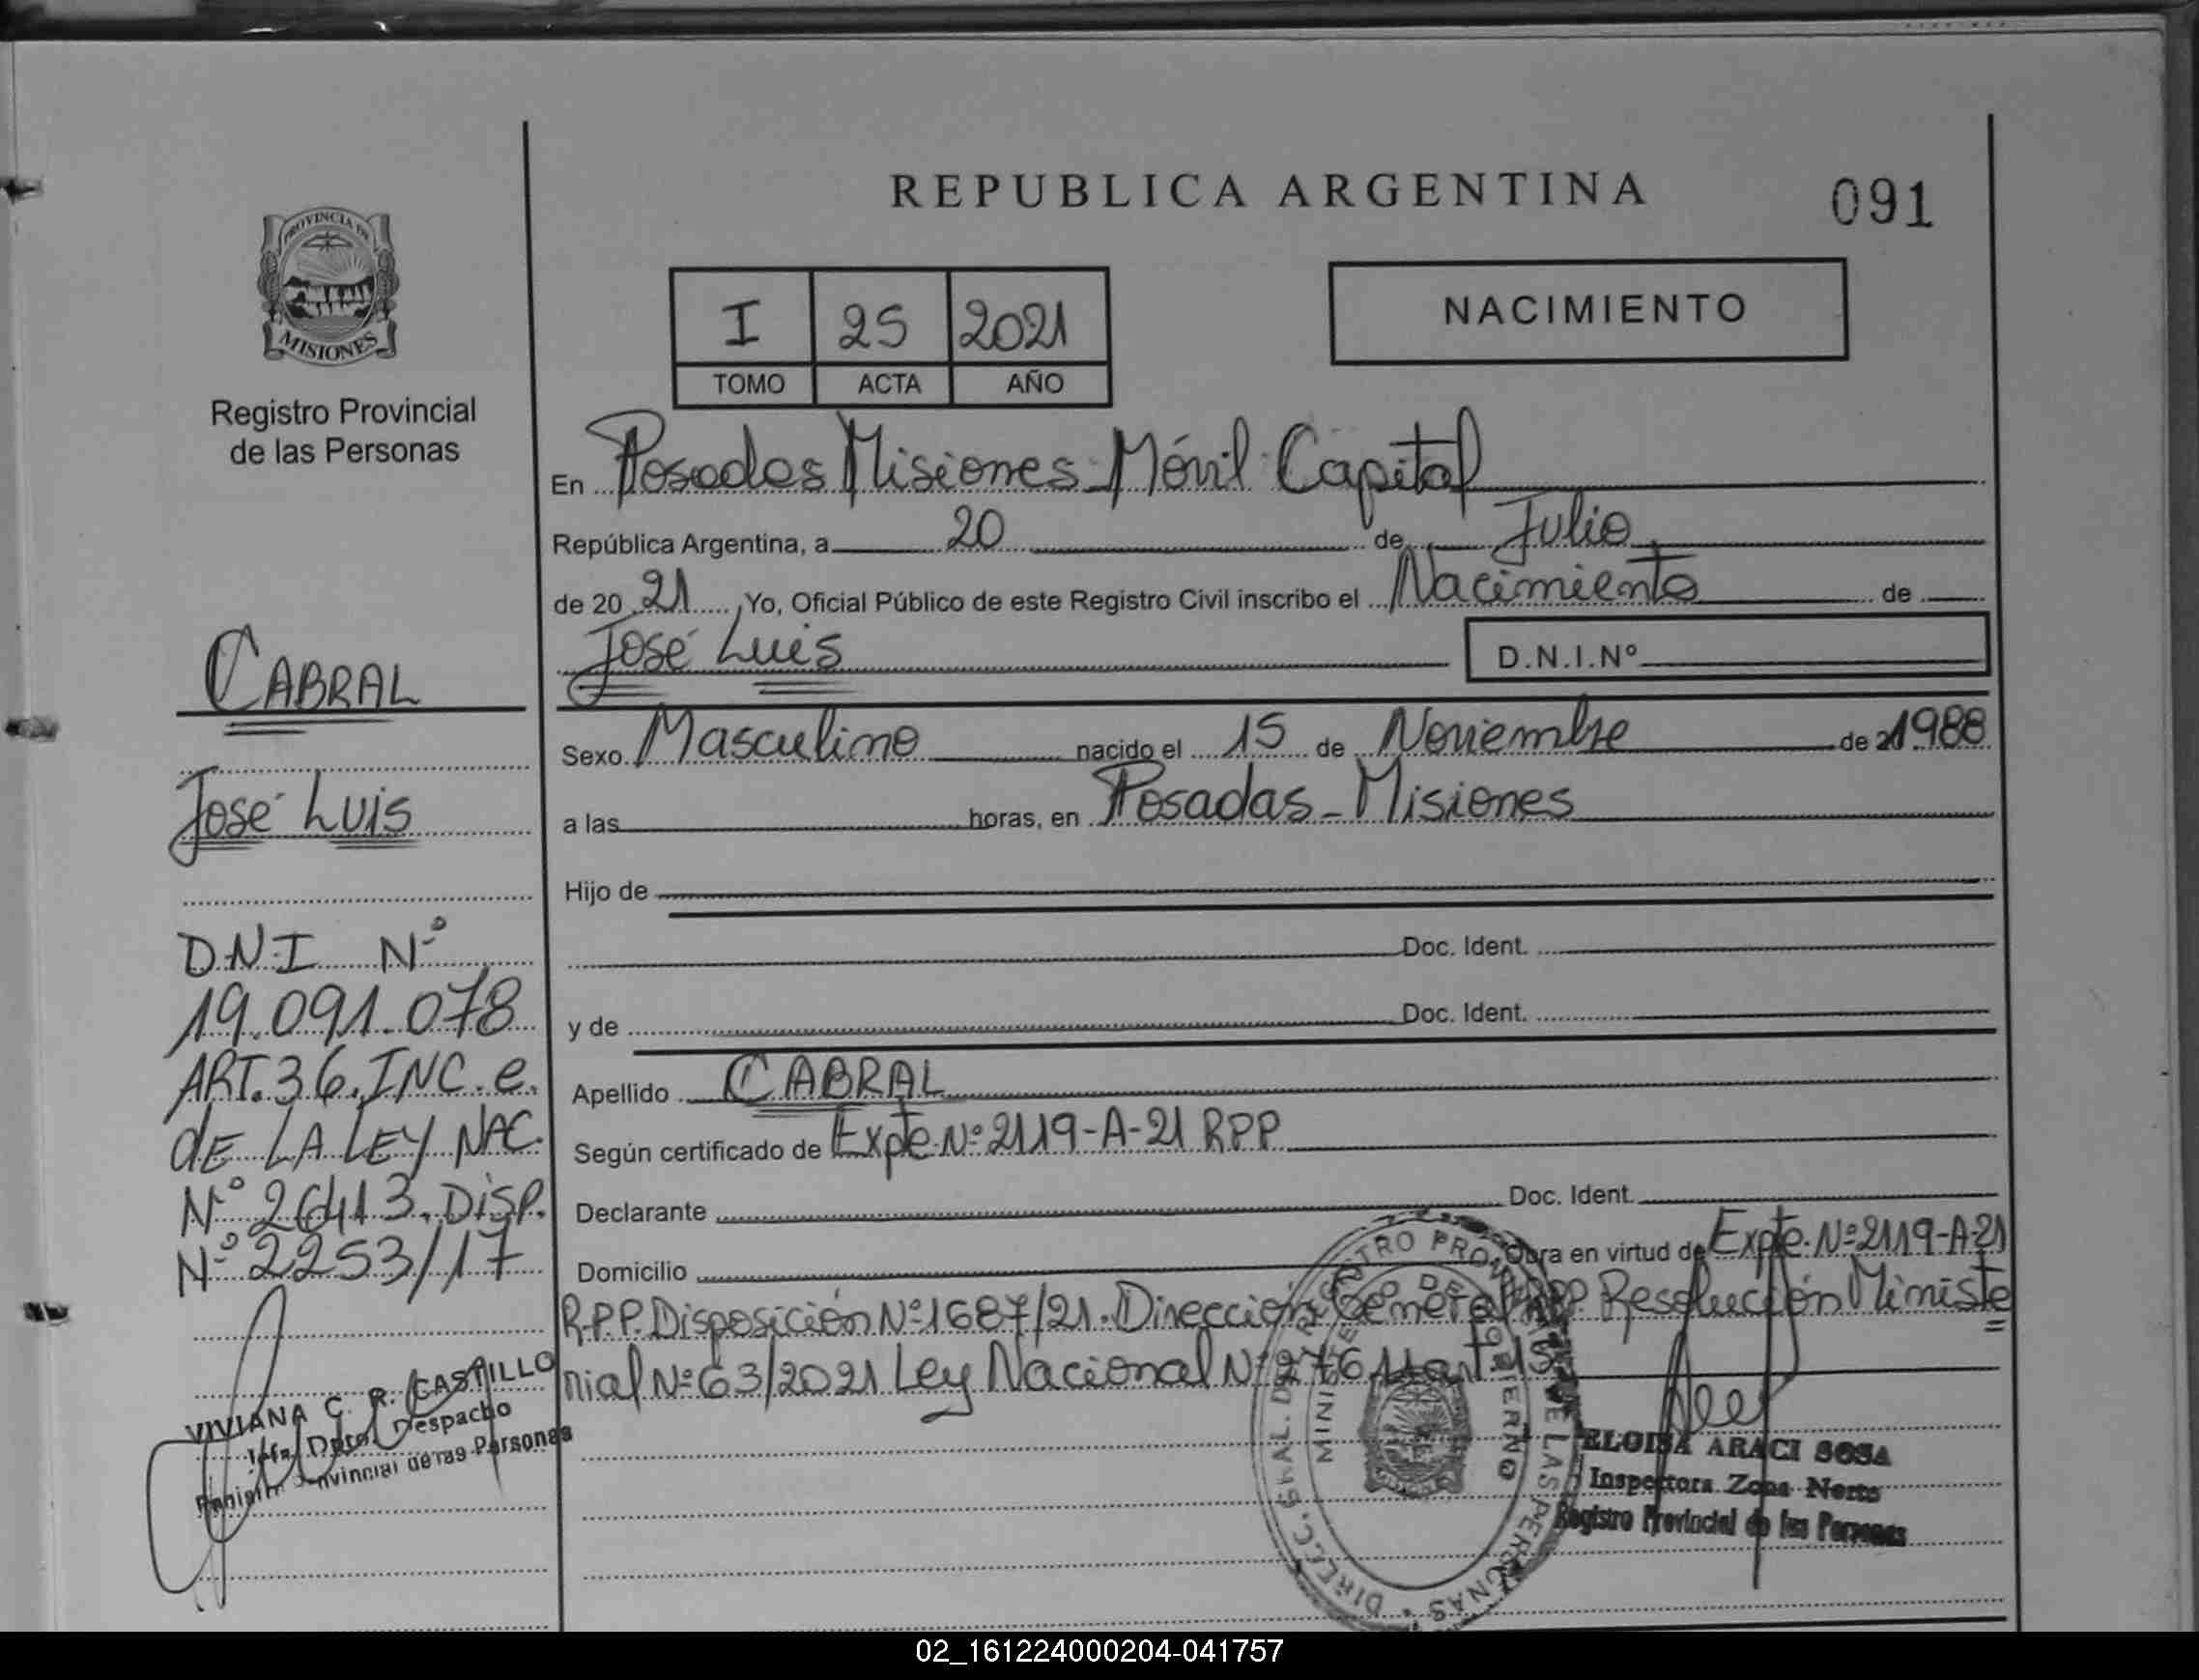 REPUBLICA ARGENTINA
091
PROVINCIA DE
MISIONES
Registro Provincial
de las Personas
I 25 2021
TOMO ACTA AÑO
NACIMIENTO
En Posadas Misiones - Móvil Capital
República Argentina, a 20 de Julio
de 20 21 Yo, Oficial Público de este Registro Civil inscribo el Nacimiento de
José Luis D.N.I.Nº
Sexo Masculino nacido el 15 de Noviembre de 1988
a las horas, en Posadas - Misiones
Hijo de
Doc. Ident.
y de Doc. Ident.
Apellido CABRAL
Según certificado de Expte. Nº 2119-A-21 RPP
Declarante Doc. Ident.
Domicilio Obra en virtud de Expte. Nº 2119-A-21
R.P.P. Disposición Nº 1687/21. Dirección General RPP. Resolución Ministe
rial Nº 63/2021 Ley Nacional Nº
CABRAL
José Luis
D.N.I Nº
19.091.078
ART. 36. INC. e.
dE LA LEY NAC.
Nº 26413. DISP.
Nº 2253/17
VIVIANA C. R. CASTILLO
Jefa Dpto. Despacho
Provincial de las Personas
ELOISA ARACI SOSA
Inspectora Zona Norte
Registro Provincial de las Personas
DIRECC. GRAL. DEL REGISTRO PROVINCIAL DE LAS PERSONAS
MINISTERIO DE GOBIERNO
02_161224000204-041757